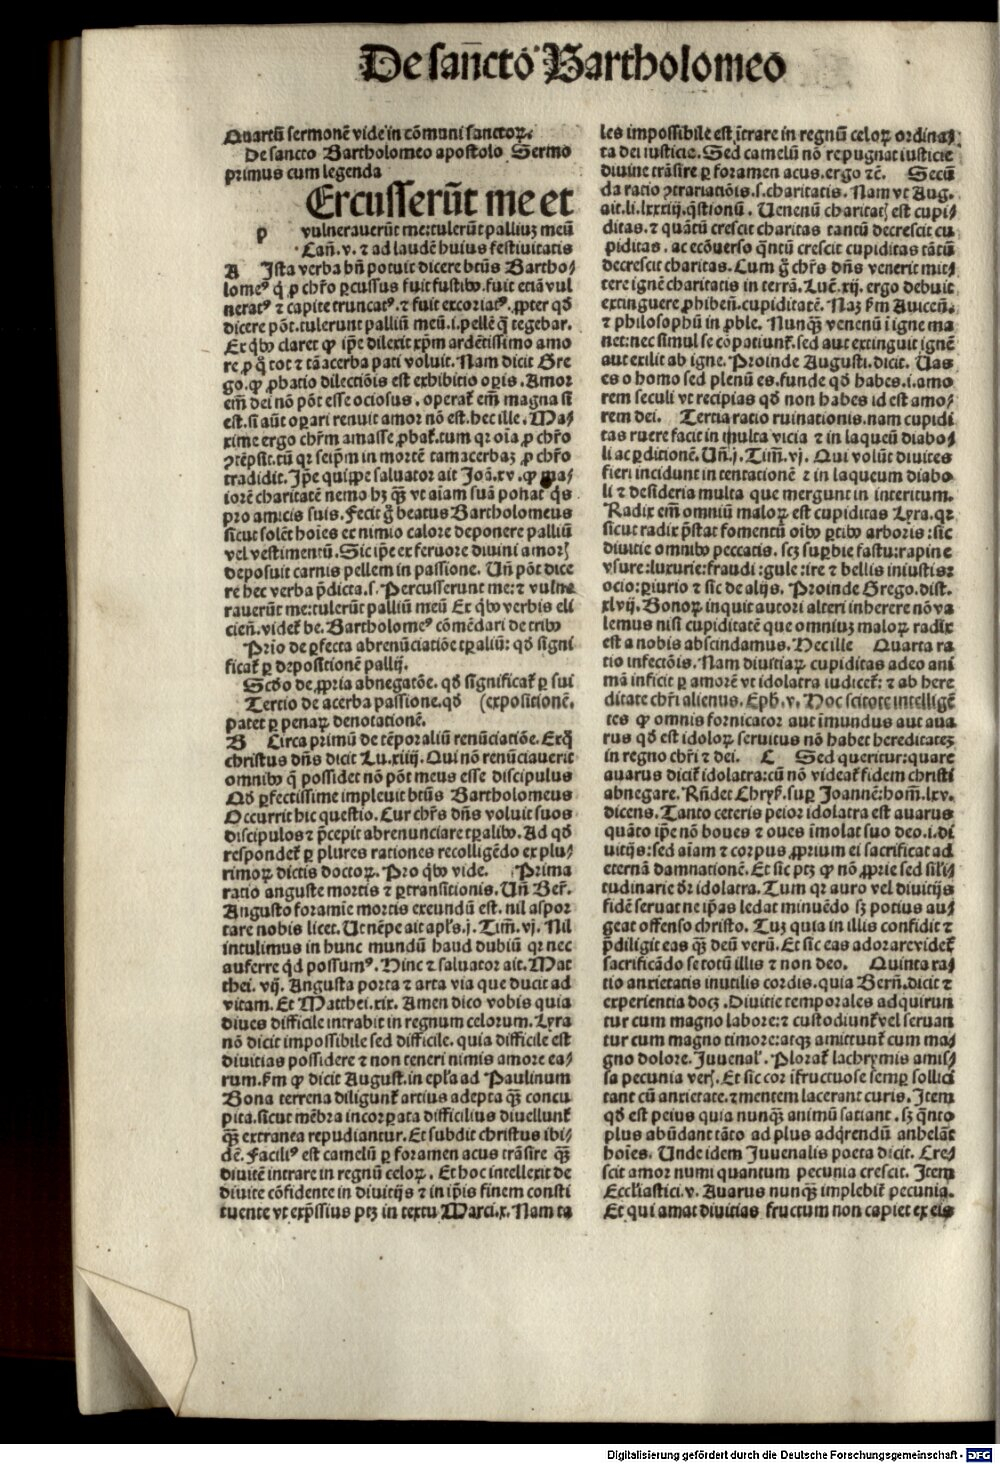 De sancto Bartholomeo
Quartū sermonē vide in cōmuni sanctoꝝ.
De sancto Bartholomeo apostolo Sermo
primus cum legenda
Ercusserūt me et
p vulnerauerūt me:tulerūt palliuꝫ meū
Cañ.v. ⁊ ad laudē huius festiuitatis
A Ista verba bñ potuit dicere btūs Bartho/
lomeꝰ q̇ ꝓ chr̄o ꝑcussus fuit fustibꝰ.fuit etiā vul
neratꝰ ⁊ capite truncatꝰ.⁊ fuit excoriatꝰ.ꝓpter qđ
dicere pōt.tulerunt palliū meū.i.pellē q̄ tegebar.
Ex qͥbꝰ claret ꝙ ip̄e dilexit xp̄m ardētissimo amo
re ꝓ q̊ tot ⁊ tā acerba pati voluit. Nam dicit Gre
go.ꝙ ꝓbatio dilectiōis est exhibitio oꝑis. Amor
em̄ dei nō pōt esse ociosus. operat̄ em̄ magna si
est.si aūt oꝑari renuit amor nō est.hec ille. Ma/
xime ergo chr̄m amasse ꝓbat̄.tum qꝛ oīa ꝓ chr̄o
ꝯtēpsit.tū qꝛ seip̄m in mortē tam acerbaꝫ ꝓ chr̄o
tradidit. Ip̄e quippe saluator ait Joā.xv.ꝙ ma/
iorē charitatē nemo hꝫ qꝫ̄ vt aīam suā ponat qͥs
pro amicis suis. Fecit g̊ beatus Bartholomeus
sicut solēt hoīes ex nimio calore deponere palliū
vel vestimentū. Sic ip̄e ex feruore diuini amorꝭ
deposuit carnis pellem in passione. Uñ pōt dice
re hec verba p̄dicta.s. Percusserunt me:⁊ vulne
rauerūt me:tulerūt palliū meū Ex qͥbꝰ verbis eli
cien̄.videt̄ be. Bartholomeꝰ cōmēdari de tribꝰ
Prīo de ꝑfecta abrenūciatiōe tꝑaliū: qđ signi
ficat̄ ꝑ depositionē pallij.
Scđo de ꝓpria abnegatōe. qđ significat̄ ꝑ sui
Tertio de acerba passione.qđ (expositionē.
patet ꝑ penaꝝ denotationē.
B Circa primū de tēporaliū renūciatiōe. Ex q̊
christus dn̄s dicit Lu.xiiij. Qui nō renūciauerit
omnibꝰ q̄ possidet nō pōt meus esse discipulus
Qđ ꝑfectissime impleuit btūs Bartholomeus
Occurrit hic questio. Cur chr̄s dn̄s voluit suos
discipulos ⁊ p̄cepit abrenunciare tꝑalibꝰ. Ad qđ
respondet̄ ꝑ plures rationes recolligēdo ex plu/
rimoꝝ dictis doctoꝝ. Pro qͥbꝰ vide. Prima
ratio anguste mortis ⁊ ꝑtransitionis. Uñ Ber̄.
Angusto foramīe mortis exeundū est. nil aspor
tare nobis licet. Ut nēpe ait apl̄s.j. Tim̄.vj. Nil
intulimus in hunc mundū haud dubiū qꝛ nec
auferre qͥd possumꝰ. Hinc ⁊ saluator ait. Mat
thei. vij. Angusta porta ⁊ arta via que ducit ad
vitam. Et Matthei.xix. Amen dico vobis quia
diues difficile intrabit in regnum celorum. Lyra
nō dicit impossibile sed difficile. quia difficile est
diuitias possidere ⁊ non teneri nimis amore ea/
rum. ẜm ꝙ dicit August.in epl̄a ad Paulinum
Bona terrena diligunt̄ artius adepta qꝫ̄ concu
pita.sicut mēbra incorꝑata difficilius diuellunt̄
qꝫ̄ extranea repudiantur. Et subdit christus ibi/
dē. Faciliꝰ est camelū ꝑ foramen acus trāsire qꝫ̄
diuitē intrare in regnū celoꝝ. Et hoc intellexit de
diuite cōfidente in diuitijs ⁊ in ip̄is finem consti
tuente vt exp̄ssius ptꝫ in textu Marci.x. Nam ta
les impossibile est ītrare in regnū celoꝝ ordina/
ta dei iusticie. Sed camelū nō repugnat iusticie
diuine trāsire ꝑ foramen acus.ergo ⁊c̄. Secū
da ratio ꝯtrariatiōis.s.charitatis. Nam vt Aug.
ait.li.lxxxiij.q̄stionū. Uenenū charitatꝭ est cupi/
ditas.⁊ quātū crescit charitas tantū decrescit cu
piditas. ac ecōuerso q̄ntū crescit cupiditas tātū
decrescit charitas. Cum g̊ chr̄s dn̄s venerit mit/
tere ignē charitatis in terrā. Luc̄.xij. ergo debuit
extinguere ꝓhiben̄.cupiditatē. Naꝫ ẜm Auicen̄.
⁊ philosophū in ꝓble. Nunqꝫ̄ venenū ī igne ma
net:nec simul se cōpatiunt̄.sed aut extinguit ignē
aut exilit ab igne. Proinde Augusti.dicit. Uas
es o homo sed plenū es.funde qđ habes.i.amo
rem seculi vt recipias qđ non habes id est amo/
rem dei. Tertia ratio ruinationis.nam cupidi
tas ruere facit in multa vicia ⁊ in laqueū diabo/
li ac ꝑditionē. Uñ.j. Tim̄.vj. Qui volūt diuites
fieri incidunt in tentationē ⁊ in laqueum diabo
li ⁊ desideria multa que mergunt in interitum.
Radix em̄ omniū maloꝝ est cupiditas Lyra.qꝛ
sicut radix p̄stat fomentū oībꝰ ꝑtibꝰ arboris:sic
diuitie omnibꝰ peccatis. scꝫ suꝑbie fastu:rapine
vsure:luxurie:fraudi:gule:ire ⁊ bellis iniustis:
ocio:ꝑiurio ⁊ sic de alijs. Proinde Grego.dist.
xlvij. Bonoꝝ inquit autori alteri inherere nō va
lemus nisi cupiditatē que omniuꝫ maloꝝ radix
est a nobis abscindamus. Hec ille Quarta ra
tio infectōis. Nam diuitiaꝝ cupiditas adeo ani
mā inficit ꝑ amorē vt idolatra iudicet̄: ⁊ ab here
ditate chr̄i alienus. Eph̄.v. Hoc scitote intelligē
tes ꝙ omnis fornicator aut īmundus aut aua
rus qđ est idoloꝝ seruitus nō habet hereditateꝫ
in regno chr̄i ⁊ dei. C Sed queritur:quare
auarus dicit̄ idolatra:cū nō videat̄ fidem christi
abnegare. Rn̄det Chrys̄.suꝑ Joannē:hom̄.lxv.
dicens. Tanto ceteris peior idolatra est auarus
quāto ip̄e nō boues ⁊ oues īmolat suo deo.i.di
uitijs:sed aīam ⁊ corpus ꝓprium ei sacrificat ad
eternā damnationē. Et sic ptꝫ ꝙ nō ꝓprie sed sili/
tudinarie dr̄ idolatra. Tum qꝛ auro vel diuitijs
fidē seruat ne ip̄as ledat minuēdo sꝫ potius au/
geat offenso christo. Tuꝫ quia in illis confidit ⁊
p̄diligit eas qꝫ̄ deū verū. Et sic eas adorare videt̄
sacrificādo se totū illis ⁊ non deo. Quinta ra/
tio anxietatis inutilis cordis. quia Bern̄.dicit ⁊
experientia docꝫ. Diuitie temporales adquirun
tur cum magno labore:⁊ custodiunt̄ vel seruan
tur cum magno timore:atqꝫ amittunt̄ cum ma/
gno dolore. Juuenal̄. Plorat̄ lachrymis amis/
sa pecunia verꝭ. Et sic cor īfructuose semꝑ sollici
tant cū anxietate.⁊ mentem lacerant curis. Item
qđ est peius quia nunqꝫ̄ animū satiant. sꝫ q̄nto
plus abūdant tāto ad plus adqͥrendū anhelāt
hoīes. Unde idem Juuenalis poeta dicit. Cre/
scit amor numi quantum pecunia crescit. Item
Eccl̄iastici.v. Auarus nunqꝫ̄ implebit̄ pecunia.
Et qui amat diuitias fructum non capiet ex eis
Digitalisierung gefördert durch die Deutsche Forschungsgemeinschaft - DFG